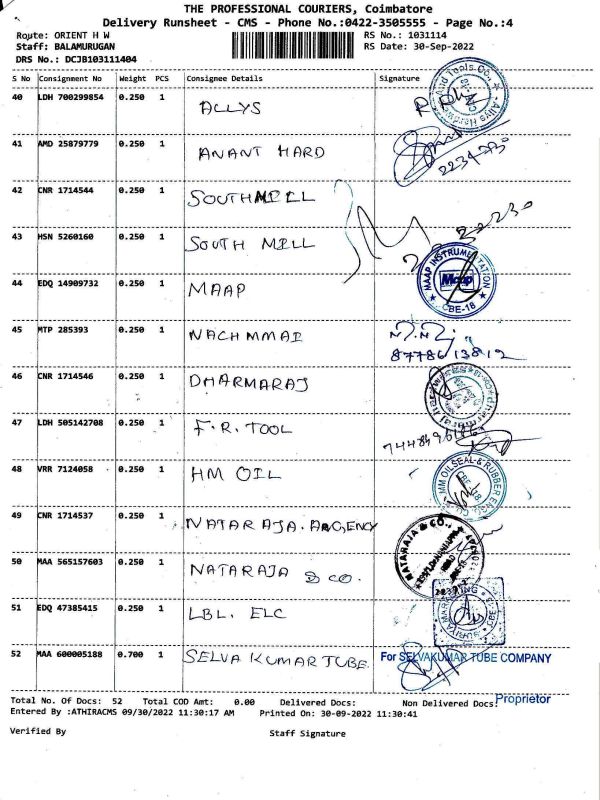 THE PROFESSIONAL COURIERS, Coimbatore
Delivery Runsheet - CMS - Phone No.:0422-3505555 - Page No.:4
Route: ORIENT H W RS No.: 1031114
Staff: BALAMURUGAN RS Date: 30-Sep-2022
DRS No.: DCJB103111404
S No Consignment No Weight PCS Consignee Details Signature
40 LDH 700299854 0.250 1 ALLYS
41 AMD 25879779 0.250 1 ANANT HARD
42 CNR 1714544 0.250 1 SOUTHMILL
43 HSN 5260160 0.250 1 SOUTH MILL
44 EDQ 14909732 0.250 1 MAAP MAAP INSTRUMENTATION Maap CBE-18
45 MTP 285393 0.250 1 NACHMMAI
8778613812
46 CNR 1714546 0.250 1 DHARMARAJ
47 LDH 505142708 0.250 1 F.R. TOOL
48 VRR 7124058 0.250 1 HM OIL OILSEAL & RUBBER
49 CNR 1714537 0.250 1 NATARAJA. AAGENCY
50 MAA 565157603 0.250 1 NATARAJA & CO. NATARAJA & CO.,
51 EDQ 47385415 0.250 1 LBL. ELC
52 MAA 600005188 0.700 1 SELVA KUMAR TUBE For SELVAKUMAR TUBE COMPANY
Proprietor
Total No. Of Docs: 52 Total COD Amt: 0.00 Delivered Docs: Non Delivered Docs:
Entered By :ATHIRACMS 09/30/2022 11:30:17 AM Printed On: 30-09-2022 11:30:41
Verified By Staff Signature